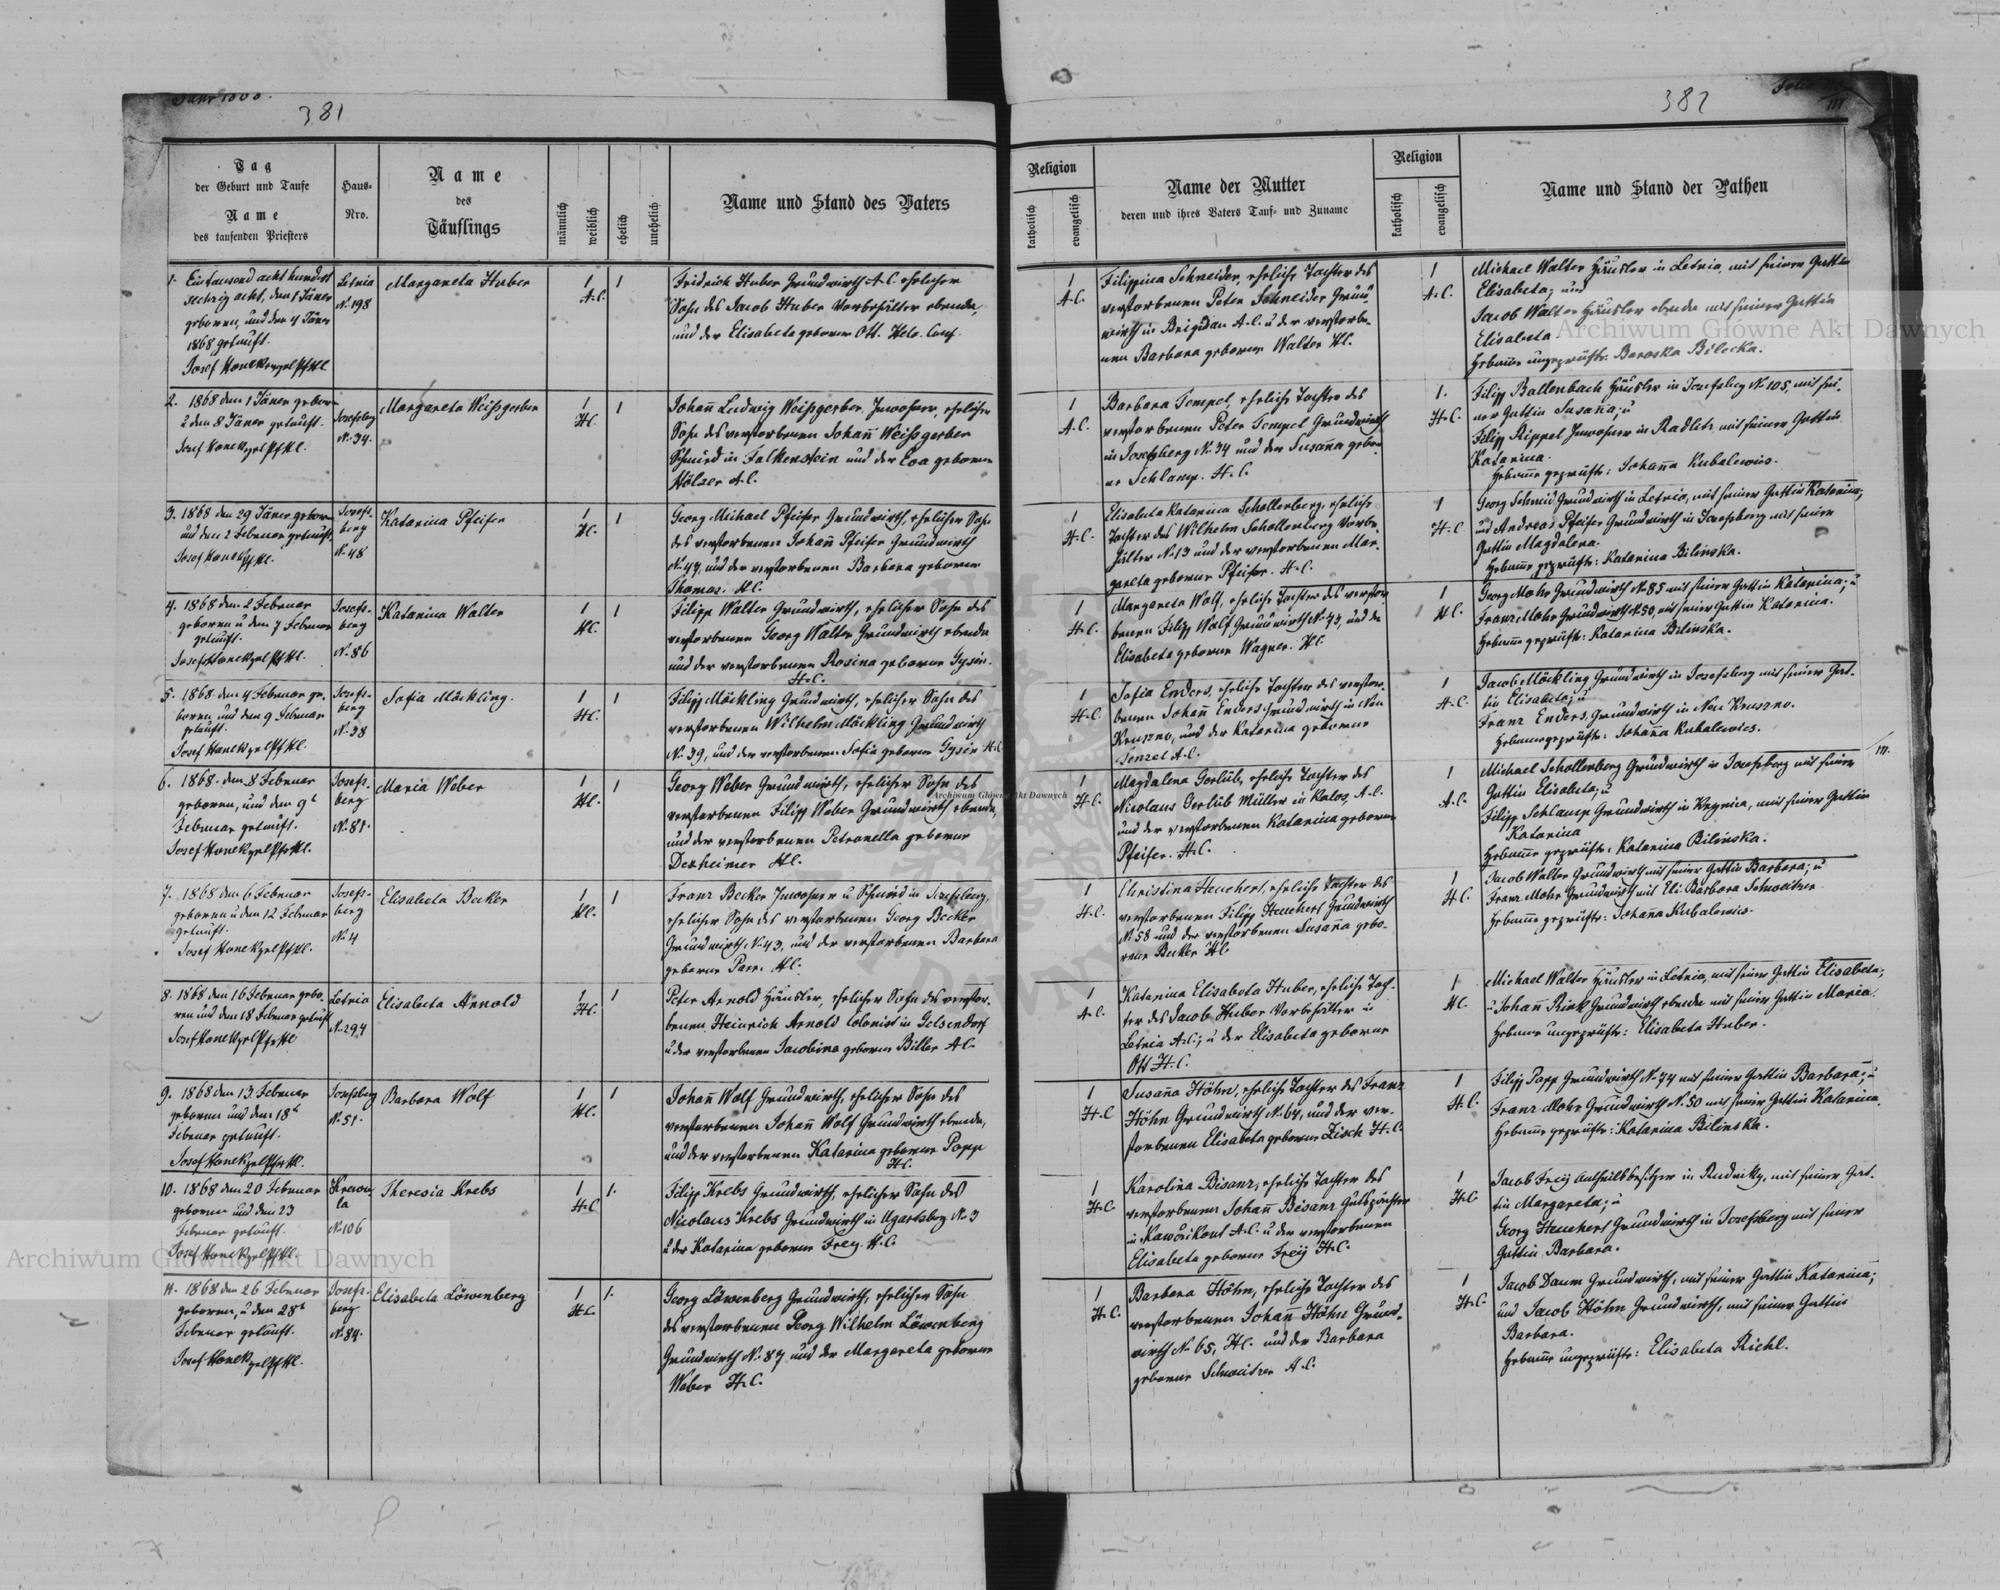 Jahr 1868.
381
Tag
der Geburt und Taufe
Name
des taufenden Priesters
Haus-
Nro.
Name
des
Täuflings
männlich
weiblich
ehelich
unehelich
Name und Stand des Vaters
1. Ein tausend acht hundert
sechzig acht, den 1 Jäner
geboren, und den 4 Jäner
1868 getauft.
Josef Honek
Letnia
N. 198
Margareta Huber
1
A.C.
1
Fridrich Huber Grundwirth A.C. ehelicher
Sohn des Jacob Huber Vorbehälter ebenda,
und der Elisabeta geborene Ott. Helv. Conf.
2. 1868 den 1 Jäner geboren
u den 8 Jäner getauft.
Josef Honek
Josefsberg
N. 34.
Margareta Weißgerber
1
H.C.
1
Johañ Ludwig Weißgerber, Inwohner, ehelicher
Sohn des verstorbenen Johañ Weißgerber
Schmied in Falkenstein und der Eva geborene
Hölzer A.C.
3. 1868 den 29 Jäner geboren
und den 2 Februar getauft.
Josef Honek
Josefs-
berg
N. 48
Katarina Pfeifer
1
H.C.
1
Georg Michael Pfeifer Grundwirth, ehelicher Sohn
des verstorbenen Johañ Pfeifer Grundwirth
N. 47, und der verstorbenen Barbara geborene
Thomas. H.C.
4. 1868 den 2 Februar
geboren u den 7 Februar
getauft.
Josef Honek
Josefs-
berg
N. 86
Katarina Walter
1
H.C.
1
Filipp Walter Grundwirth, ehelicher Sohn des
verstorbenen Georg Walter Grundwirth ebenda
und der verstorbenen Rosina geborene Gysin.
H.C.
5. 1868 den 4 Februar ge-
boren und den 9 Februar
getauft.
Josef Honek
Josefs-
berg
N. 38
Sofia Möckling.
1
H.C.
1
Filipp Möckling Grundwirth, ehelicher Sohn des
verstorbenen Wilhelm Möckling Grundwirth
N. 39, und der verstorbenen Sofia geborene Gysin H.C.
6. 1868 den 8 Februar
geboren, und den 9t
Februar getauft.
Josef Honek
Josefs-
berg
N. 81.
Maria Weber
1
H.C.
1
Georg Weber Grundwirth, ehelicher Sohn des
verstorbenen Filipp Weber Grundwirth ebenda,
und der verstorbenen Petronella geborene
Dexheimer H.C.
7. 1868 den 6 Februar
geboren u den 12 Februar
getauft.
Josef Honek
Josefs-
berg
N. 4
Elisabeta Becker
1
H.C.
1
Franz Becker Inwohner u Schmied in Josefsberg,
ehelicher Sohn des verstorbenen Georg Becker
Grundwirth N. 43, und der verstorbenen Barbara
geborene Parr. H.C.
8. 1868 den 16 Februar gebo-
ren und den 18 Februar getauft
Josef Honek
Letnia
N. 294
Elisabeta Arnold
1
H.C.
1
Peter Arnold Häusler, ehelicher Sohn des verstor-
benen Heinrich Arnold Colonist in Gelsendorf
u der verstorbenen Jacobina geborene Biller A.C.
9. 1868 den 13. Februar
geboren und den 18t
Februar getauft.
Josef Honek
Josefsberg
N. 51.
Barbara Wolf
1
H.C.
1
Johañ Wolf Grundwirth, ehelicher Sohn des
verstorbenen Johañ Wolf Grundwirth ebenda,
und der verstorbenen Katarina geborene Popp
H.C.
10. 1868 den 20 Februar
geboren und den 23
Februar getauft.
Josef Honek
la
N. 106
Theresia Krebs
1
H.C.
1.
Filipp Krebs Grundwirth, ehelicher Sohn des
Nicolaus Krebs Grundwirth in Ugartsberg N. 3
u der Katarina geborene Frey. H.C.
11. 1868 den 26 Februar
geboren, u den 28t
Februar getauft.
Josef Honek
Josefs-
berg
N. 84.
Elisabeta Löwenberg
1
H.C.
1.
Georg Löwenberg Grundwirth, ehelicher Sohn
des verstorbenen Georg Wilhelm Löwenberg
Grundwirth N. 87 und der Margareta geborene
Weber H.C.
382
Folio
III
Religion
katholisch
evangelisch
Name der Mutter
deren und ihres Vaters Tauf- und Zuname
Religion
katholisch
evangelisch
Name und Stand der Pathen
1
A.C.
Filippina Schneider, eheliche Tochter des
verstorbenen Peter Schneider Grund-
wirth in Brigidau A.C. u der verstorbe-
nen Barbara geborene Walter H.C.
1
A.C.
Michael Walter Häusler in Letnia, mit seiner Gattin
Elisabeta; und
Jacob Walter Häusler ebenda mit seiner Gattin
Elisabeta
Hebame ungeprüft: Baraska Bilecka.
1
A.C.
Barbara Tempel, eheliche Tochter des
verstorbenen Peter Tempel Grundwirth
in Josefsberg N. 34 und der Susaña gebor-
ne Schlamp. H.C.
1.
H.C.
Filipp Ballenbach Häusler in Josefsberg N. 105, mit sei-
ner Gattin Susaña; u
Filipp Rippel Inwohner in Radlitz mit seiner Gattin
Katarina.
Hebame geprüft: Johaña Kubalewics.
1
H.C.
Elisabeta Katarina Schollenberg, eheliche
Tochter des Wilhelm Schollenberg Vorbe-
hälter N. 13 und der verstorbenen Mar-
gareta geborene Pfeifer. H.C.
1
H.C.
Georg Schmid Grundwirth in Letnia, mit seiner Gattin Katarina;
und Andreas Pfeifer Grundwirth in Josefsberg mit seiner
Gattin Magdalena.
Hebame geprüft: Katarina Bilinska.
1
H.C.
Margareta Wolf, eheliche Tochter des verstor-
benen Filipp Wolf Grundwirth N. 43, und der
Elisabeta geborene Wagner. H.C.
1
H.C.
Georg Mohr Grundwirth N. 85 mit seiner Gattin Katarina; u
Franz Mohr Grundwirth N. 50, mit seiner Gattin Katarina.
Hebame geprüft: Katarina Bilinska.
1
H.C.
Sofia Enders, eheliche Tochter des verstor-
benen Johañ Enders Grundwirth in Neu
und der Katarina geborene
A.C.
1
H.C.
Jacob Möckling Grundwirth in Josefsberg mit seiner Gat-
tin Elisabeta; u
Franz Enders, Grundwirth in Neu
Hebame geprüft: Johaña Kubalewics.
1
H.C.
Magdalena Gorlüb, eheliche Tochter des
Nicolaus Gerlüb Müller in Kalos, A.C.
und der verstorbenen Katarina geborene
Pfeifer. H.C.
1
A.C.
Michael Schollenberg Grundwirth in Josefsberg mit seiner
Gattin Elisabeta; u
Filipp Schlamp Grundwirth in Krynica, mit seiner Gattin
Katarina
Hebame geprüft: Katarina Bilinska.
III.
1
H.C.
Christina Heuchert, eheliche Tochter des
verstorbenen Filipp Heuchert Grundwirth
N. 58 und der verstorbenen Susaña gebo-
rene Becker H.C.
1
H.C.
Jacob Walter Grundwirth mit seiner Gattin Barbara; u
Franz Mohr Grundwirth mit Barbara Schweitzer
Hebame geprüft: Johaña Kubalewics.
1
A.C.
Katarina Elisabeta Huber, eheliche Toch-
ter des Jacob Huber Vorbehälter in
Letnia A.C.; u der Elisabeta geborene
Ott H.C.
1
H.C.
Michael Walter Häusler in Letnia, mit seiner Gattin Elisabeta;
u Johañ Rink Grundwirth ebenda mit seiner Gattin Maria.
Hebame ungeprüft: Elisabeta Huber.
1
H.C.
Susaña Höhn, eheliche Tochter des Franz
Höhn Grundwirth N. 64, und der ver-
storbenen Elisabeta geborene Zisch H.C.
1
H.C.
Filipp Popp Grundwirth N. 74 mit seiner Gattin Barbara; u
Franz Mohr Grundwirth N. 50 mit seiner Gattin Katarina.
Hebame geprüft: Katarina Bilinska.
1
H.C.
Karolina Bisanz, eheliche Tochter des
verstorbenen Johañ Bisanz Gutspächter
in A.C. u der verstorbenen
Elisabeta geborene Freÿ H.C.
1
H.C.
Jacob Freÿ Antheilsbesitzer in Rudniky, mit seiner Gat-
tin Margareta; u
Georg Heuchert Grundwirth in Josefsberg mit seiner
Gattin Barbara.
1
H.C.
Barbara Höhn, eheliche Tochter des
verstorbenen Johañ Höhn Grund-
wirth N. 65, H.C. und der Barbara
geborene Schweitzer H.C.
1
H.C.
Jacob Daum Grundwirth, mit seiner Gattin Katarina;
und Jacob Höhn Grundwirth, mit seiner Gattin
Barbara.
Hebame ungeprüft: Elisabeta Richl.
Archiwum Główne Akt Dawnych
Archiwum Główne Akt Dawnych
Archiwum Główne Akt Dawnych